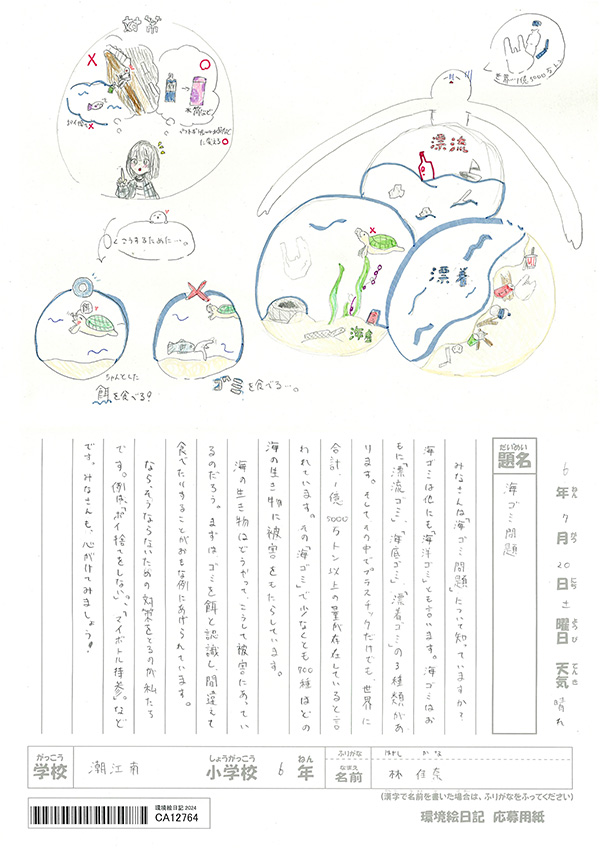 対策
ポイ捨て×
水筒など
ペットボトルではなく水筒などに変える○
くこうするために…。
ちゃんとした
餌を食べる♪
ゴミを食べる…。
漂流
漂着
海底
世界一億5000万トン
6年7月20日土曜日 天気 晴れ
ねん がつ にち ようび てんき
だいめい
題名
海ゴミ問題
みなさんは「海ゴミ問題」について知っていますか?
海ゴミは他にも「海洋ゴミ」とも言います。海ゴミはお
もに「漂流ゴミ」、「海底ゴミ」、「漂着ゴミ」の3種類があ
ります。そしてその中でプラスチックだけでも、世界に
合計、1億5000万トン以上の量が存在していると言
われています。その「海ゴミ」で少なくとも700種ほどの
海の生き物に被害をもたらしています。
海の生き物はどうやって、こうして被害にあってい
るのだろう。まずはゴミを餌と認識し、間違えて
食べたりすることがおもな例にあげられています。
ならそうならないための対策をとるのが私たち
です。例は、「ポイ捨てをしない」、「マイボトル持参」など
です。みなさんも、心がけてみましょう!
がっこう
学校
潮江南
しょうがっこう
小学校
6
ねん
年
ふりがな
はやし かな
なまえ
名前
林 佳奈
(漢字で名前を書いた場合は、ふりがなをふってください)
環境絵日記2024
CA12764
環境絵日記 応募用紙